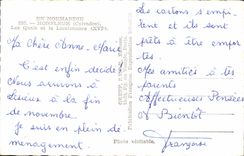 EN NORMANDIE
HONFLEUR (Calvados)
Les Quais et la Lieutenance (XVIe)
Ma Chère Anne-Marie
C'est enfin décidé !
Nous arrivons à
Lisieux à la fin
de novembre.
Je suis en plein dé-
ménagement
Les cartons s'em-
pilent et ils sont
prêts à être empor-
tés
Mes amitiés à tes
parents
Affectueuses Pensées
A Bientôt
Françoise
Photo véritable